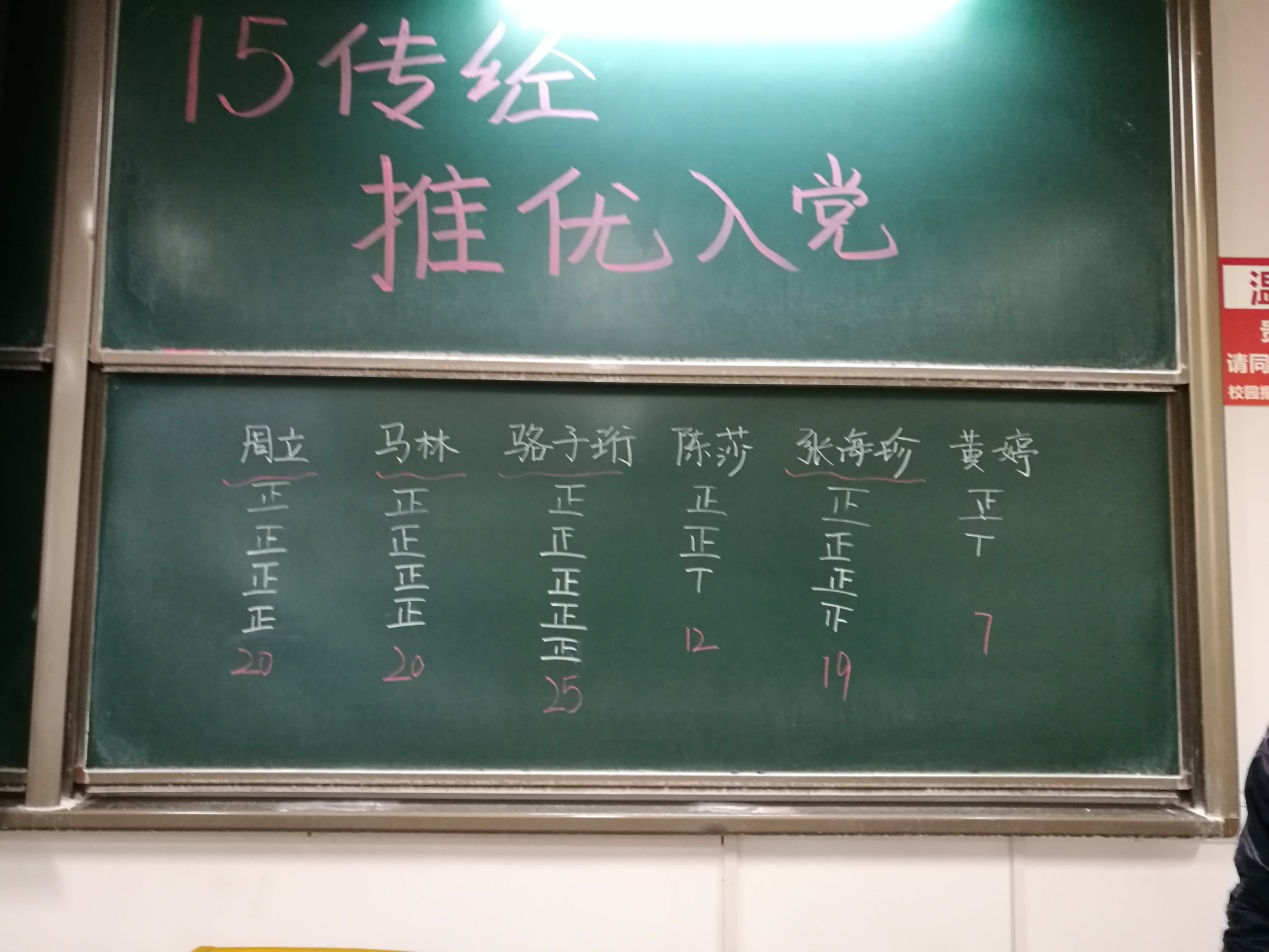 15传经
推优入党
周立 马林 骆子珩 陈莎 张海珍 黄婷
正 正 正 正 正 正
正 正 正 正 正 丅
正 正 正 丅 正
正 正 正 𤴓
正
20 20 25 12 19 7
温
请同
校园